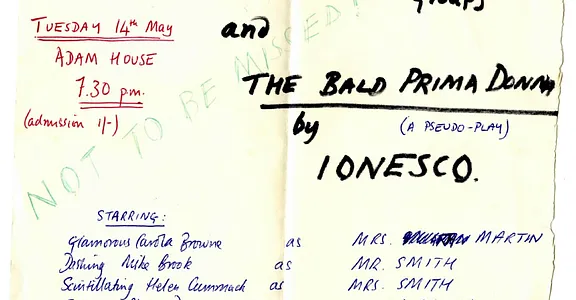 groups
TUESDAY 14th May
and
ADAM HOUSE
7.30 pm.
(admission 1/-)
NOT TO BE MISSED!
THE BALD PRIMA DONNA
by
(A PSEUDO-PLAY)
IONESCO.
STARRING:
Glamorous Carola Browne as MRS. MARTIN
Dashing Mike Brook as MR. SMITH
Scintillating Helen Cummack as MRS. SMITH